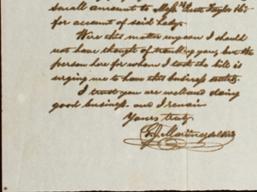 small amount to Messrs
for account of said Lady.
Were this matter my own I should
not have thought of troubling you but the
person here for whom I took the bill is
urging me to have this business settled
I trust you are well and doing
good business. and I remain
Yours truly